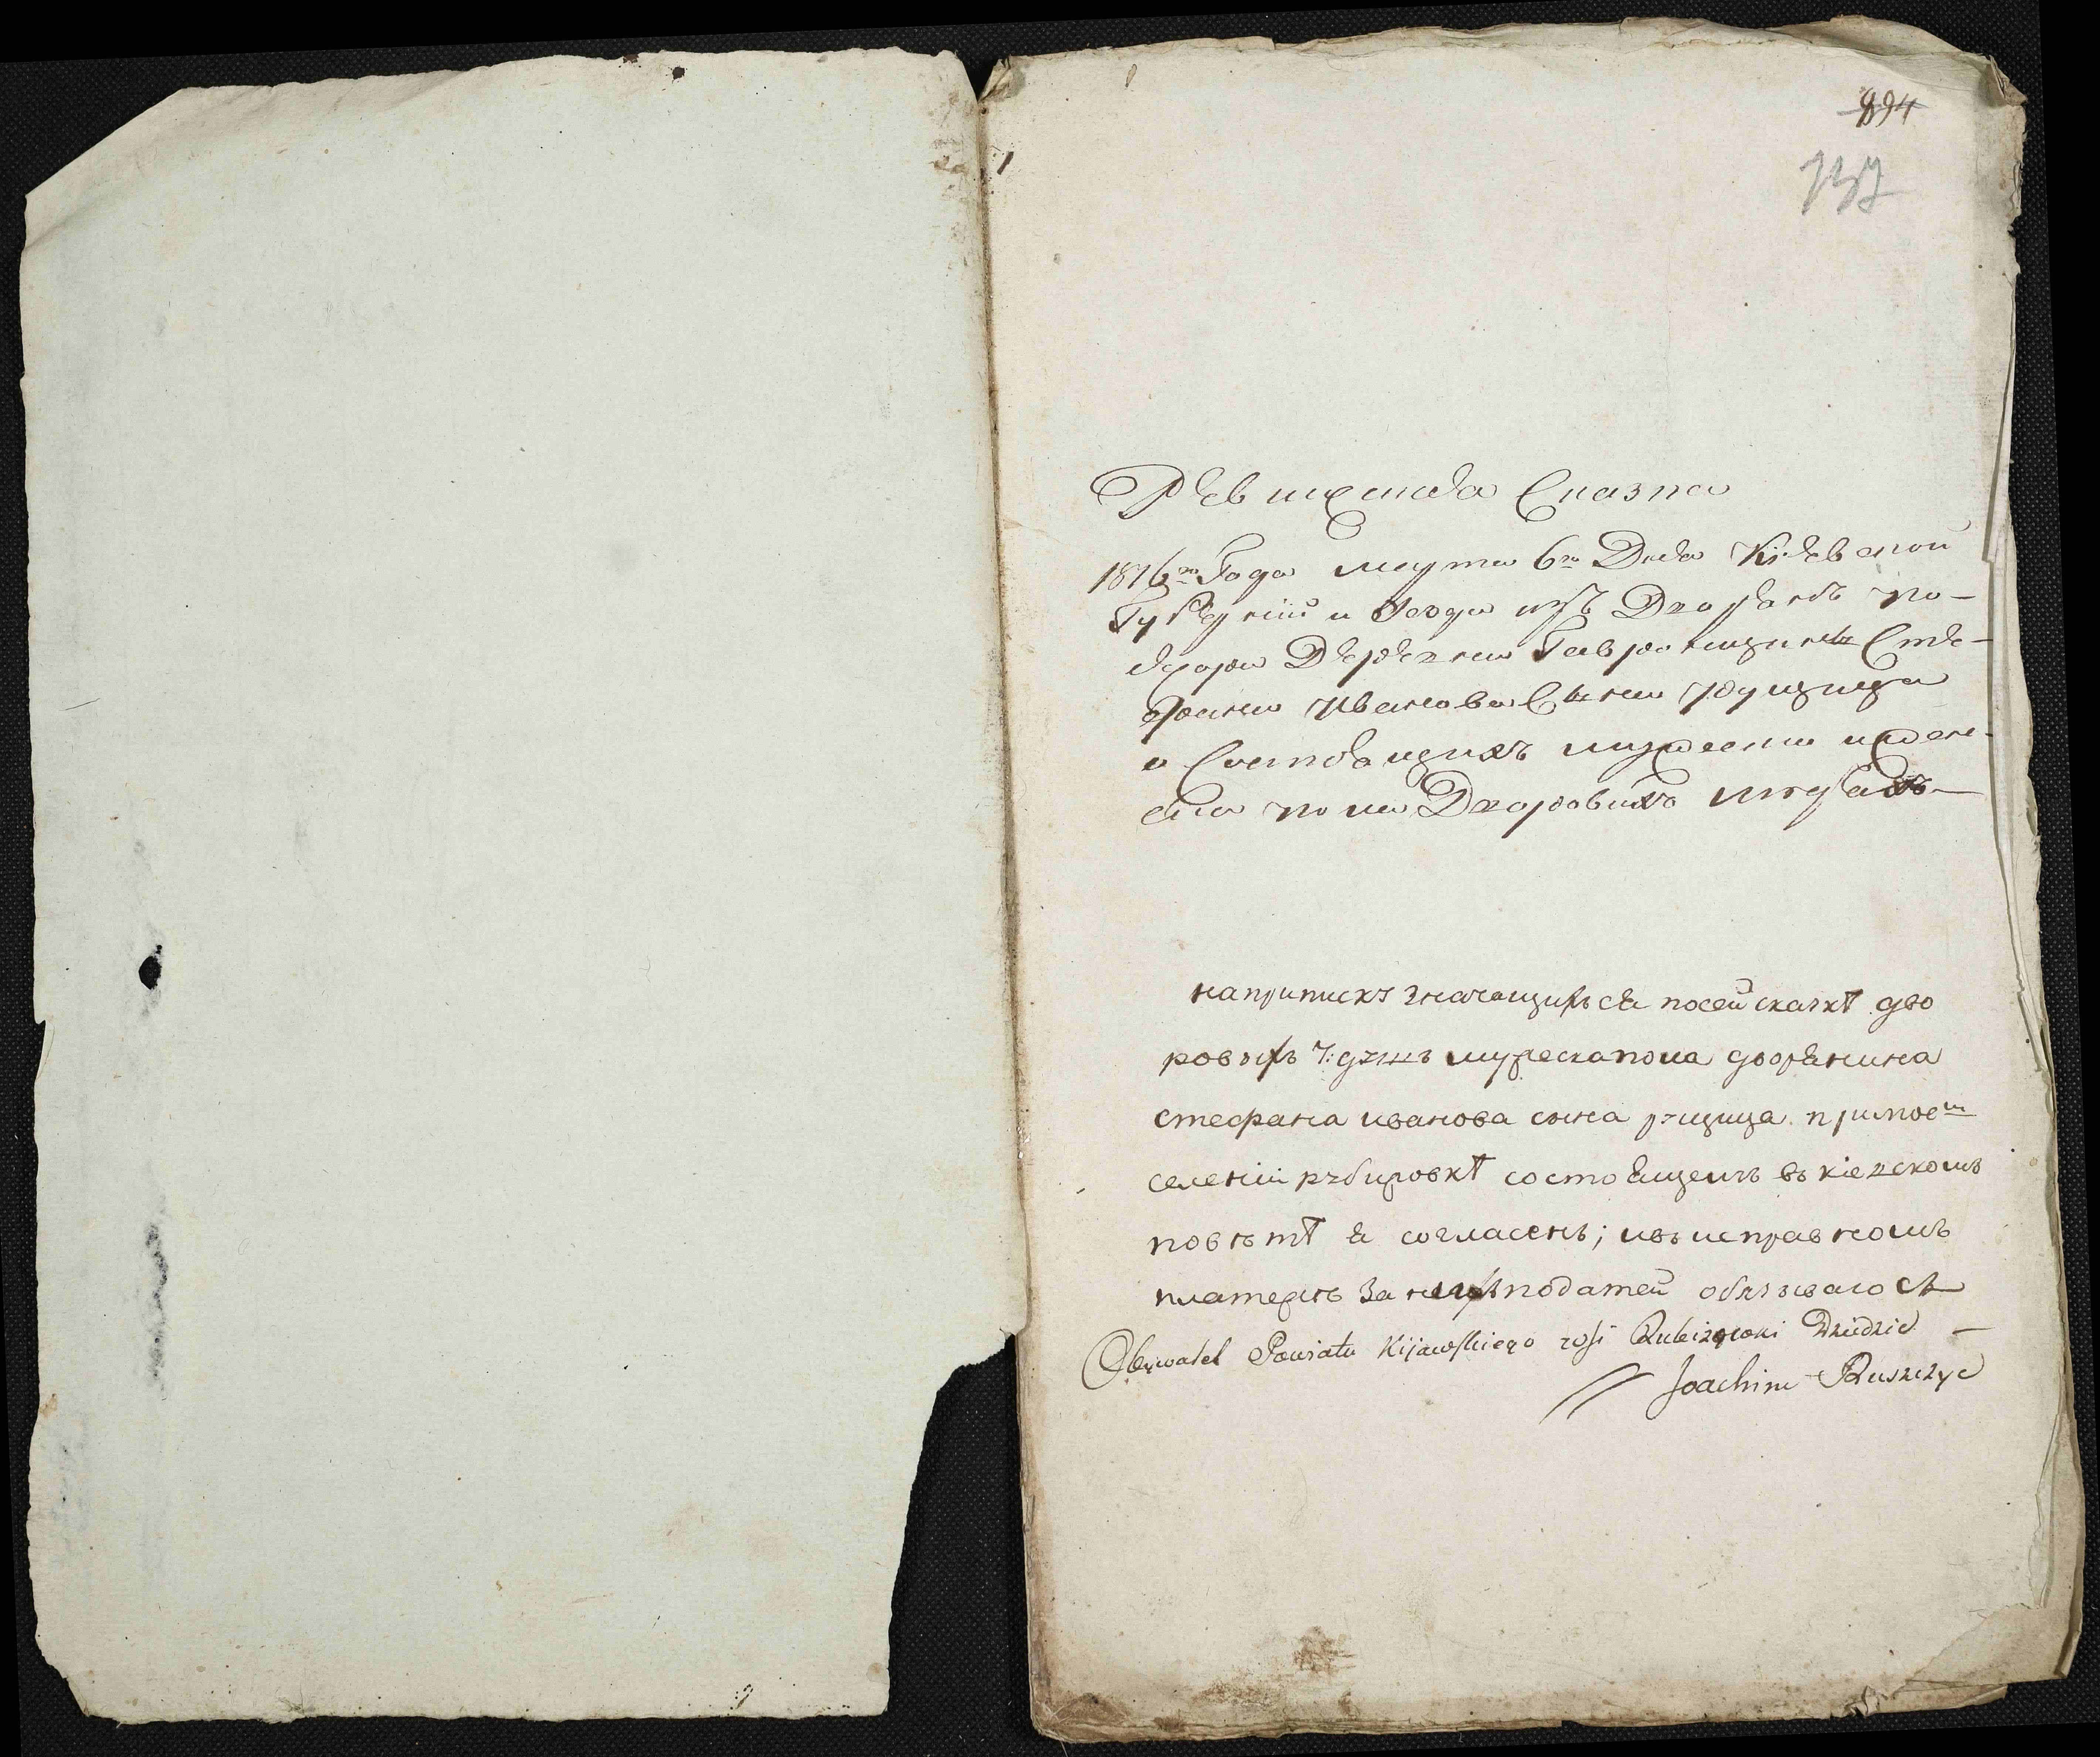 894
737
Ревижская Сказка
1816го Года марта 6го Дня Кіевской
Губернiи и Повѣта изъ Дворянъ По-
сесора Деревни Гавронщины Сте-
фана Иванова Сына Рущица
о Состоящихъ мужеска и женс-
ка пола Дворовыхъ людяхъ
на приписку значащихся посей сказкѣ дво
ровыхъ 7: душъ мужеска пола дворянина
стефана иванова сина рущица примое
селенiи рубировкѣ состоящемъ въ кiевскомъ
повѣтѣ я согласенъ; ивъ исправномъ
платежѣ за нихъ податей обязываюсь
Obywatel Powiatu Kijowskiego wsi Rubiżowki Dziedzic
Joachim Ruszczyc